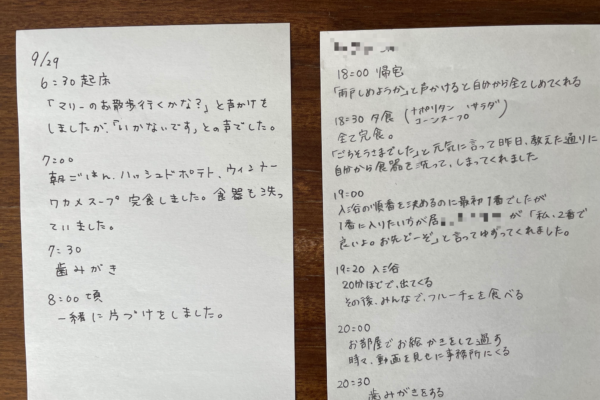 9/29
6:30 起床
「マリーのお散歩行くかな?」と声かけを
しましたが、「いかないです」との事でした。
7:00
朝ごはん、ハッシュドポテト、ウィンナー
ワカメスープ 完食しました。食器も洗っ
ていました。
7:30
歯みがき
8:00頃
一緒に片づけをしました。
18:00 帰宅
「雨戸しめようか」と声かけると自分から全てしめてくれる
18:30 夕食 (ナポリタン サラダ
コーンスープ)
全て完食。
「ごちそうさまでした」と元気に言って昨日、教えた通りに
自分から食器を洗って、しまってくれました
19:00
入浴の順番を決めるのに最初1番でしたが
1番に入りたい方が居 が「私、2番で
良いよ。お先どーぞ」と言ってゆずってくれました。
19:20 入浴
20分ほどで、出てくる
その後、みんなで、フルーチェを食べる
20:00
お部屋でお絵かきをして過す
時々、動画を見せに事務所にくる
20:30
歯みがきをする